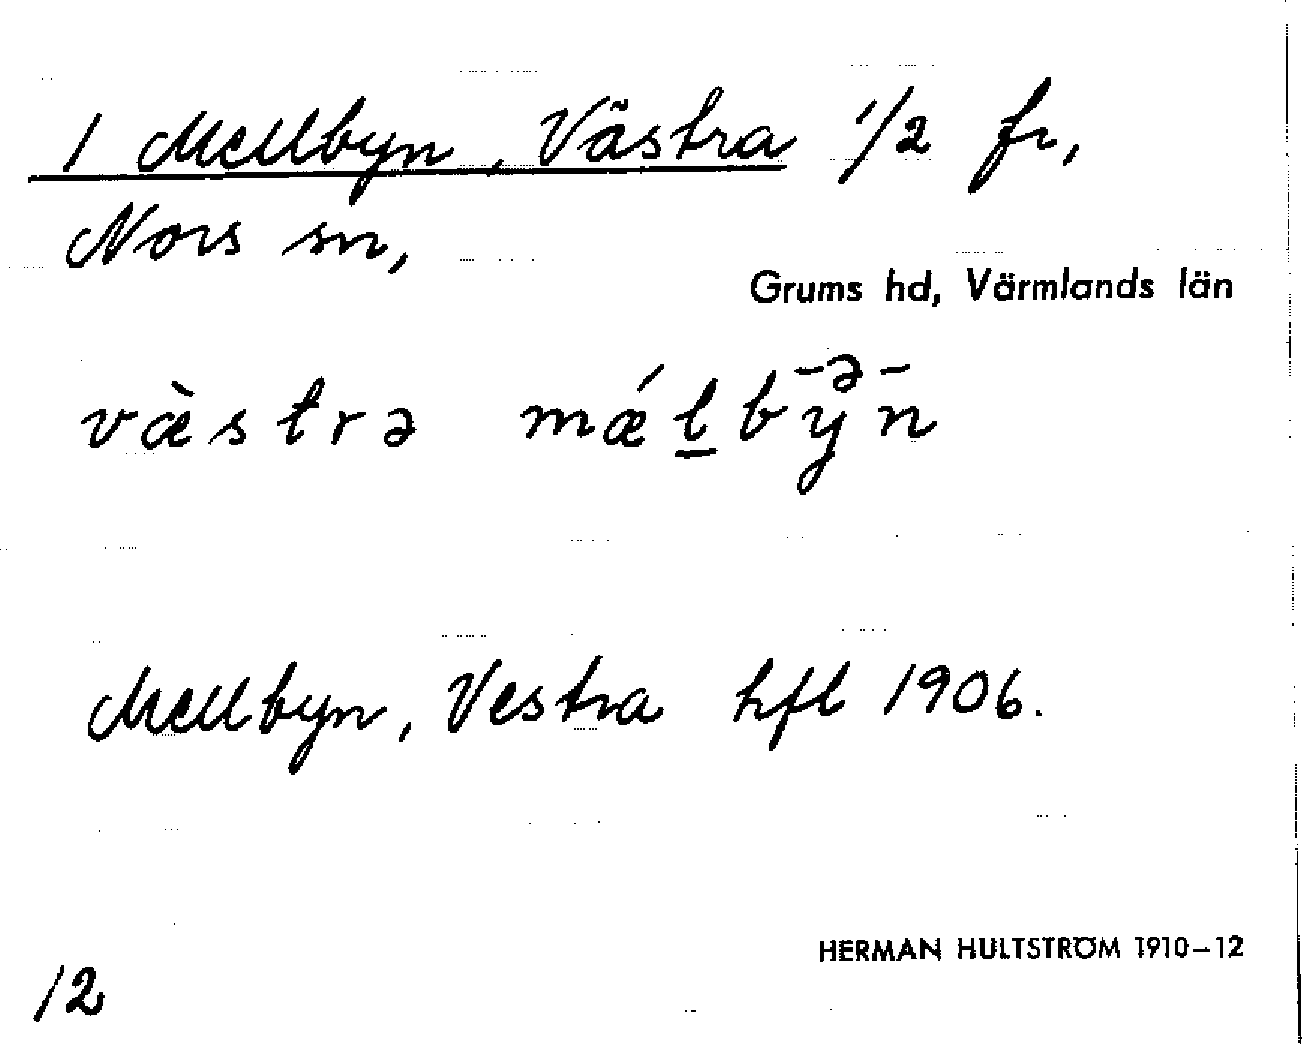 1 Mellbyn, Västra 1/2 fr,
Nors sn,
Grums hd, Värmlands län
væ̀strə mǽl̲bȳən̄
Mellbyn, Vestra hfl 1906.
HERMAN HULTSTRÖM 1910–12
12